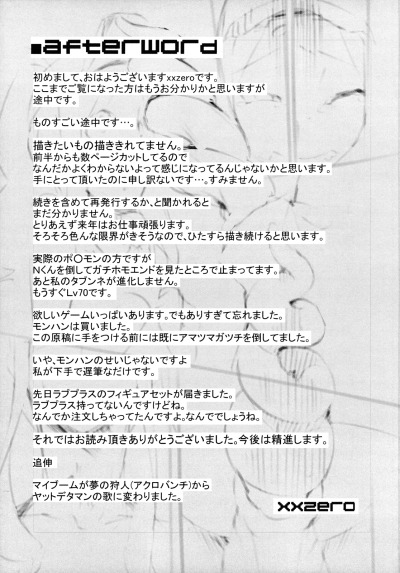 ■afterword
初めまして、おはようございますxxzeroです。
ここまでご覧になった方はもうお分かりかと思いますが
途中です。
ものすごい途中です…。
描きたいもの描ききれてません。
前半からも数ページカットしてるので
なんだかよくわからないよって感じになってるんじゃないかと思います。
手にとって頂いたのに申し訳ないです…。すみません。
続きを含めて再発行するか、と聞かれると
まだ分かりません。
とりあえず来年はお仕事頑張ります。
そろそろ色んな限界がきそうなので、ひたすら描き続けると思います。
実際のポ〇モンの方ですが
Nくんを倒してガチホモエンドを見たところで止まってます。
あと私のタブンネが進化しません。
もうすぐLv70です。
欲しいゲームいっぱいあります。でもありすぎて忘れました。
モンハンは買いました。
この原稿に手をつける前には既にアマツマガツチを倒してました。
いや、モンハンのせいじゃないですよ
私が下手で遅筆なだけです。
先日ラブプラスのフィギュアセットが届きました。
ラブプラス持ってないんですけどね。
なんでか注文しちゃってたんですよ。なんででしょうね。
それではお読み頂きありがとうございました。今後は精進します。
追伸
マイブームが夢の狩人(アクロバンチ)から
ヤットデタマンの歌に変わりました。
xxzero